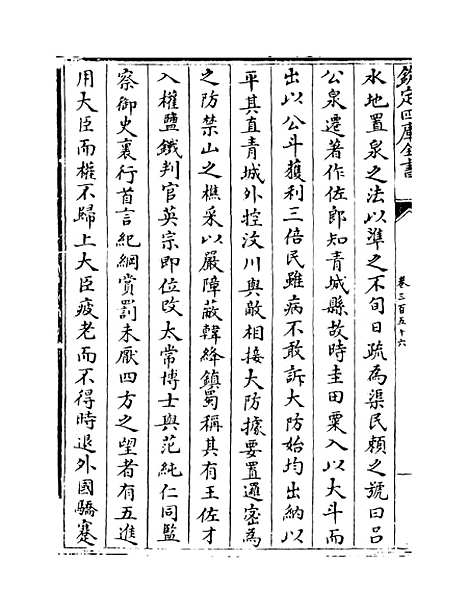 欽定四庫全書
卷三百五十六
水地置泉之法以準之不旬日疏為渠民賴之號曰吕
公泉遷著作佐郎知青城縣故時圭田粟入以大斗而
出以公斗獲利三倍民雖病不敢訴大防始均出納以
平其直青城外控汶川與敵相接大防據要置邏密為
之防禁山之樵采以嚴障蔽韓絳鎮蜀稱其有王佐才
入權鹽鐵判官英宗即位改太常博士與范純仁同監
察御史裏行首言紀綱賞罰未厭四方之望者有五進
用大臣而權不歸上大臣疲老而不得時退外國驕蹇